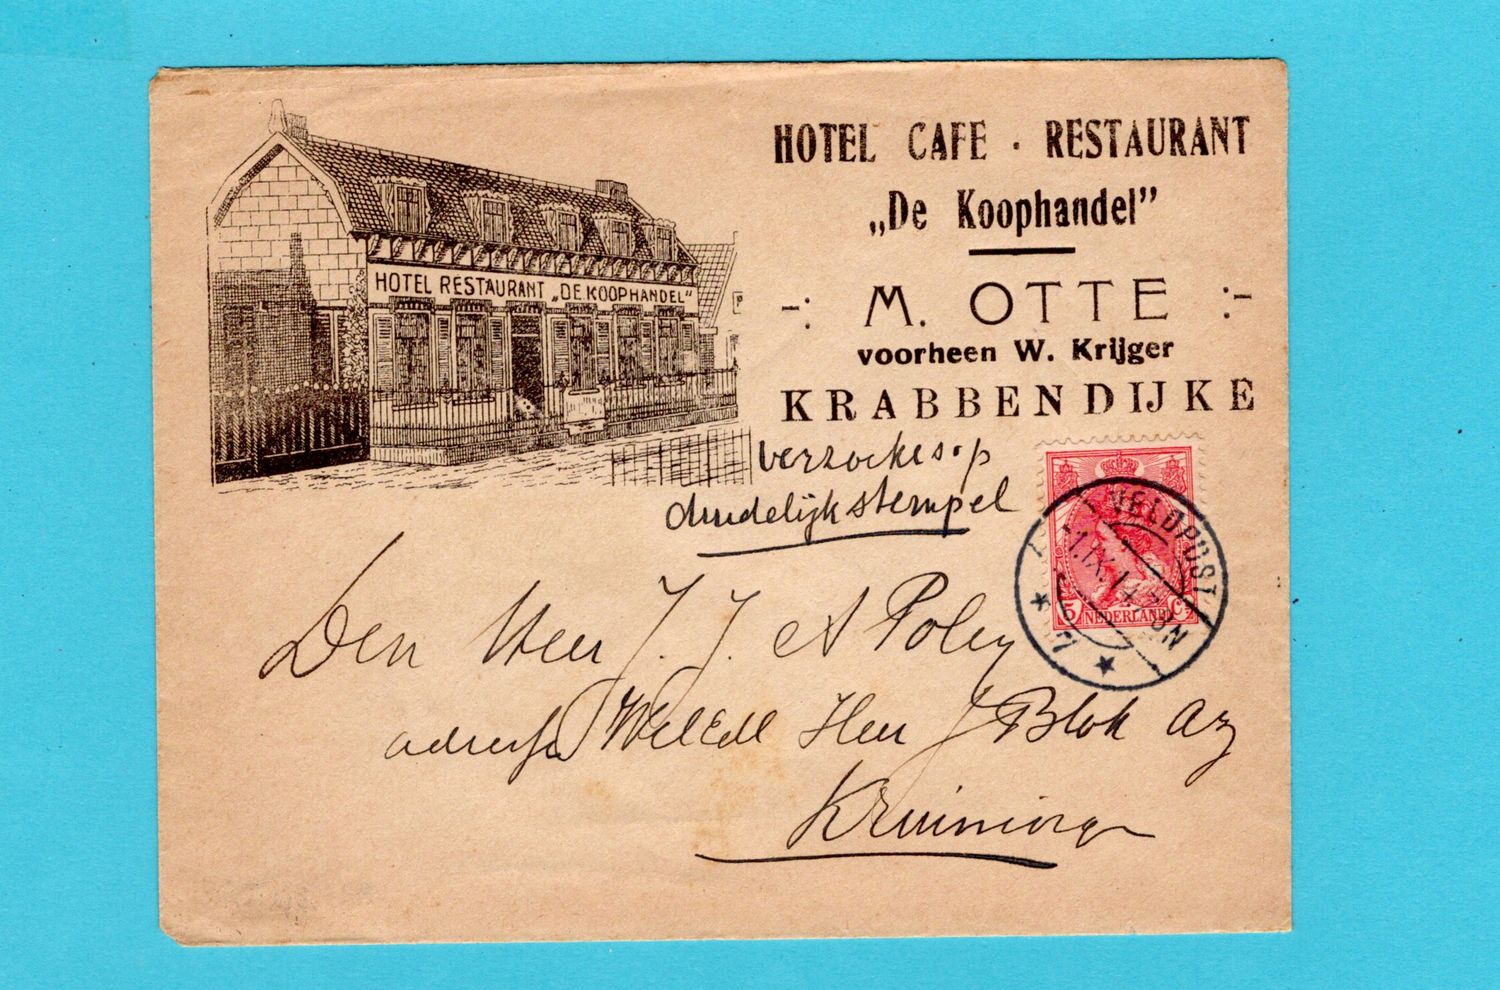 HOTEL CAFE · RESTAURANT
„De Koophandel”
-: M. OTTE :-
voorheen W. Krijger
KRABBENDIJKE
HOTEL RESTAURANT „DE KOOPHANDEL“
verzoeke s.v.p
duidelijk stempel
VELDPOST
1.IX.14.7-8N
5 NEDERLAND Ct
Den Heer J. J. A Poley
adres WelEdl Heer J Blok Az
Kruiningen